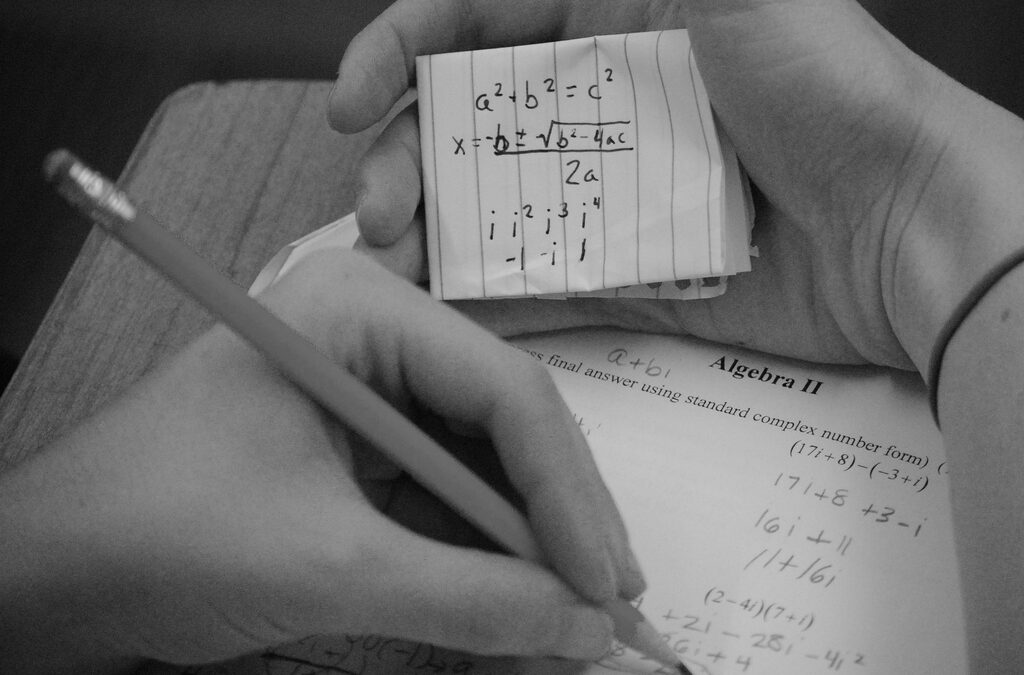 a² + b² = c²
x = -b ± √b² - 4ac
2a
i i² i³ i⁴
-1 -i 1
a+bi
Algebra II
final answer using standard complex number form)
(17i+8)−(−3+i)
17i+8 +3-i
16i + 11
11+16i
(2−4i)(7+i)
+2i - 28i - 4i²
6i + 4